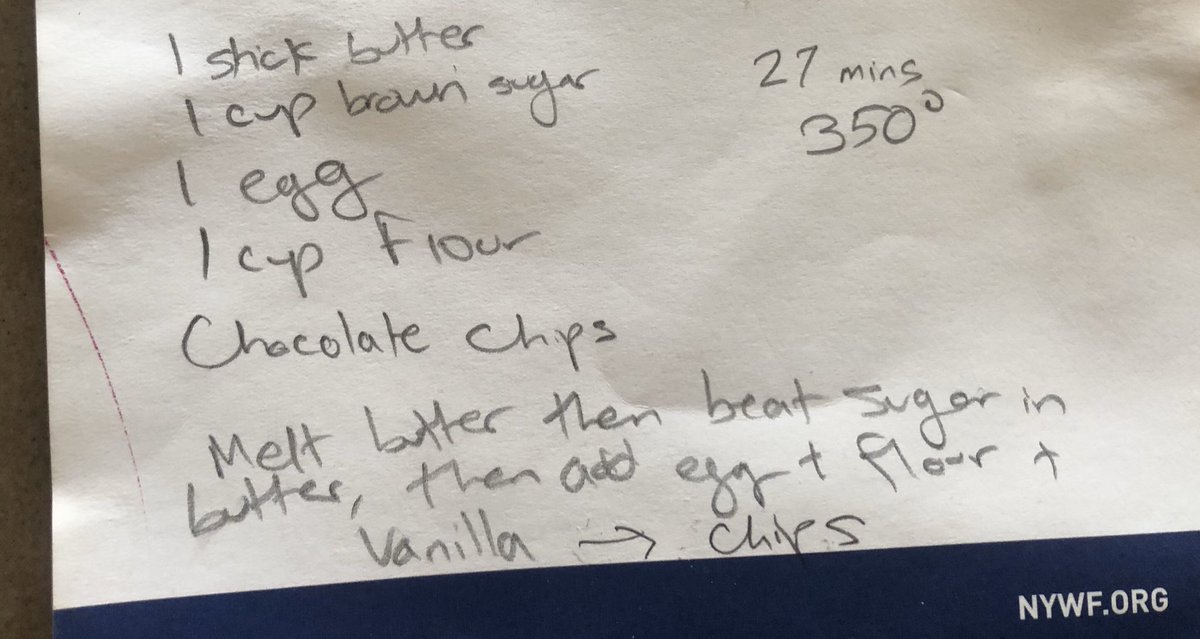 1 stick butter
1 cup brown sugar
27 mins
350°
1 egg
1 cup Flour
Chocolate chips
Melt butter then beat sugar in
butter, then add egg + flour +
Vanilla → chips
NYWF.ORG